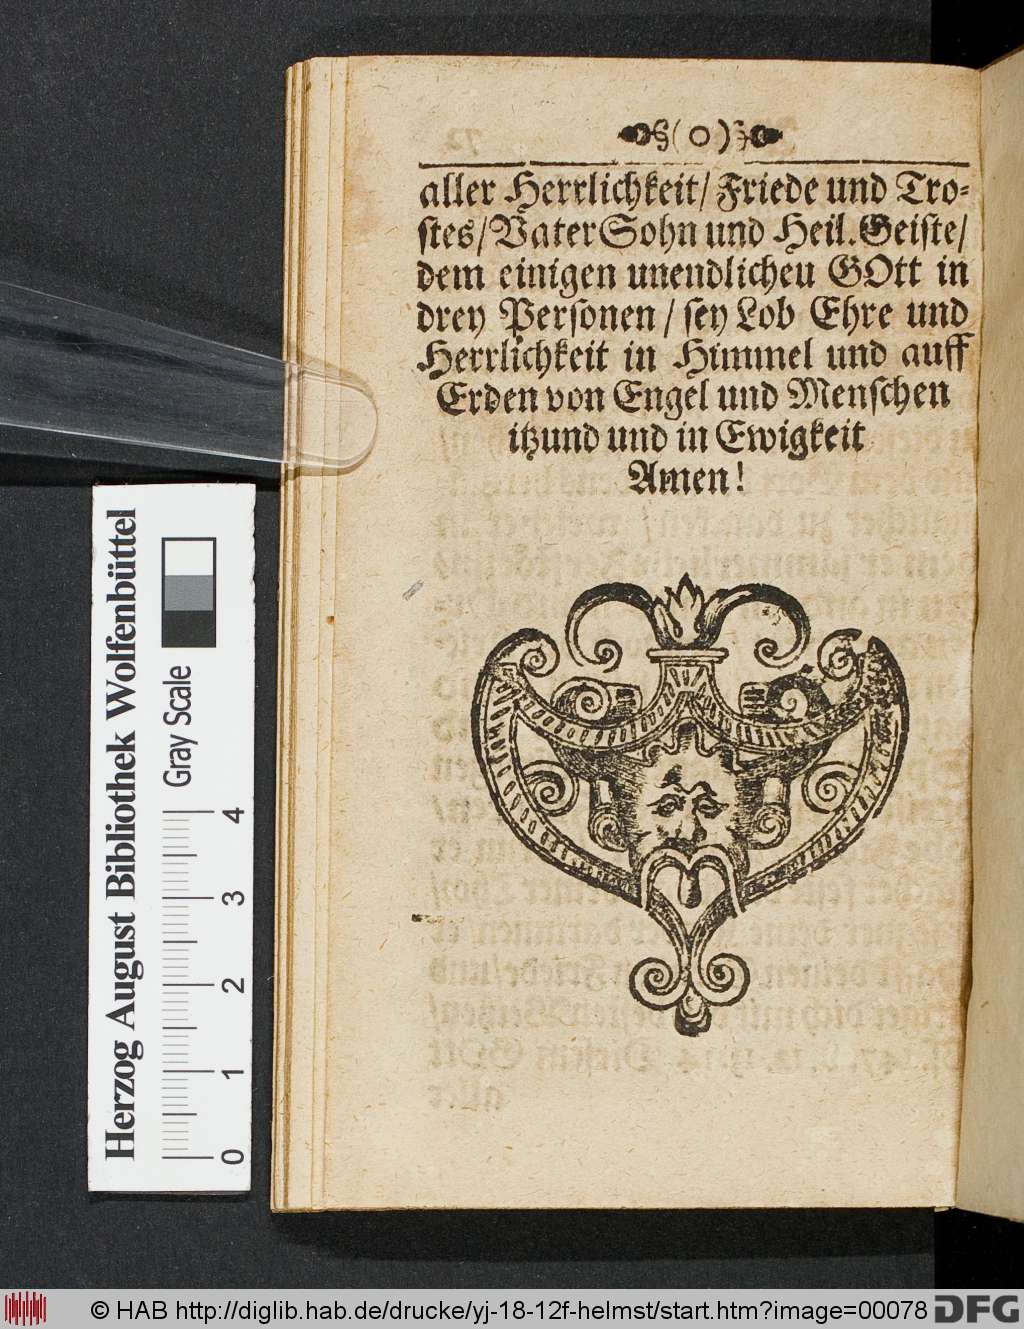 (o)
aller Herrlichkeit/ Friede und Tro-
stes/ Vater Sohn und Heil. Geiste/
dem einigen unendlicheu GOtt in
drey Personen / sey Lob Ehre und
Herrlichkeit in Himmel und auff
Erden von Engel und Menschen
itzund und in Ewigkeit
Amen!
Herzog August Bibliothek Wolfenbüttel
Gray Scale
0 1 2 3 4
© HAB http://diglib.hab.de/drucke/yj-18-12f-helmst/start.htm?image=00078
DFG